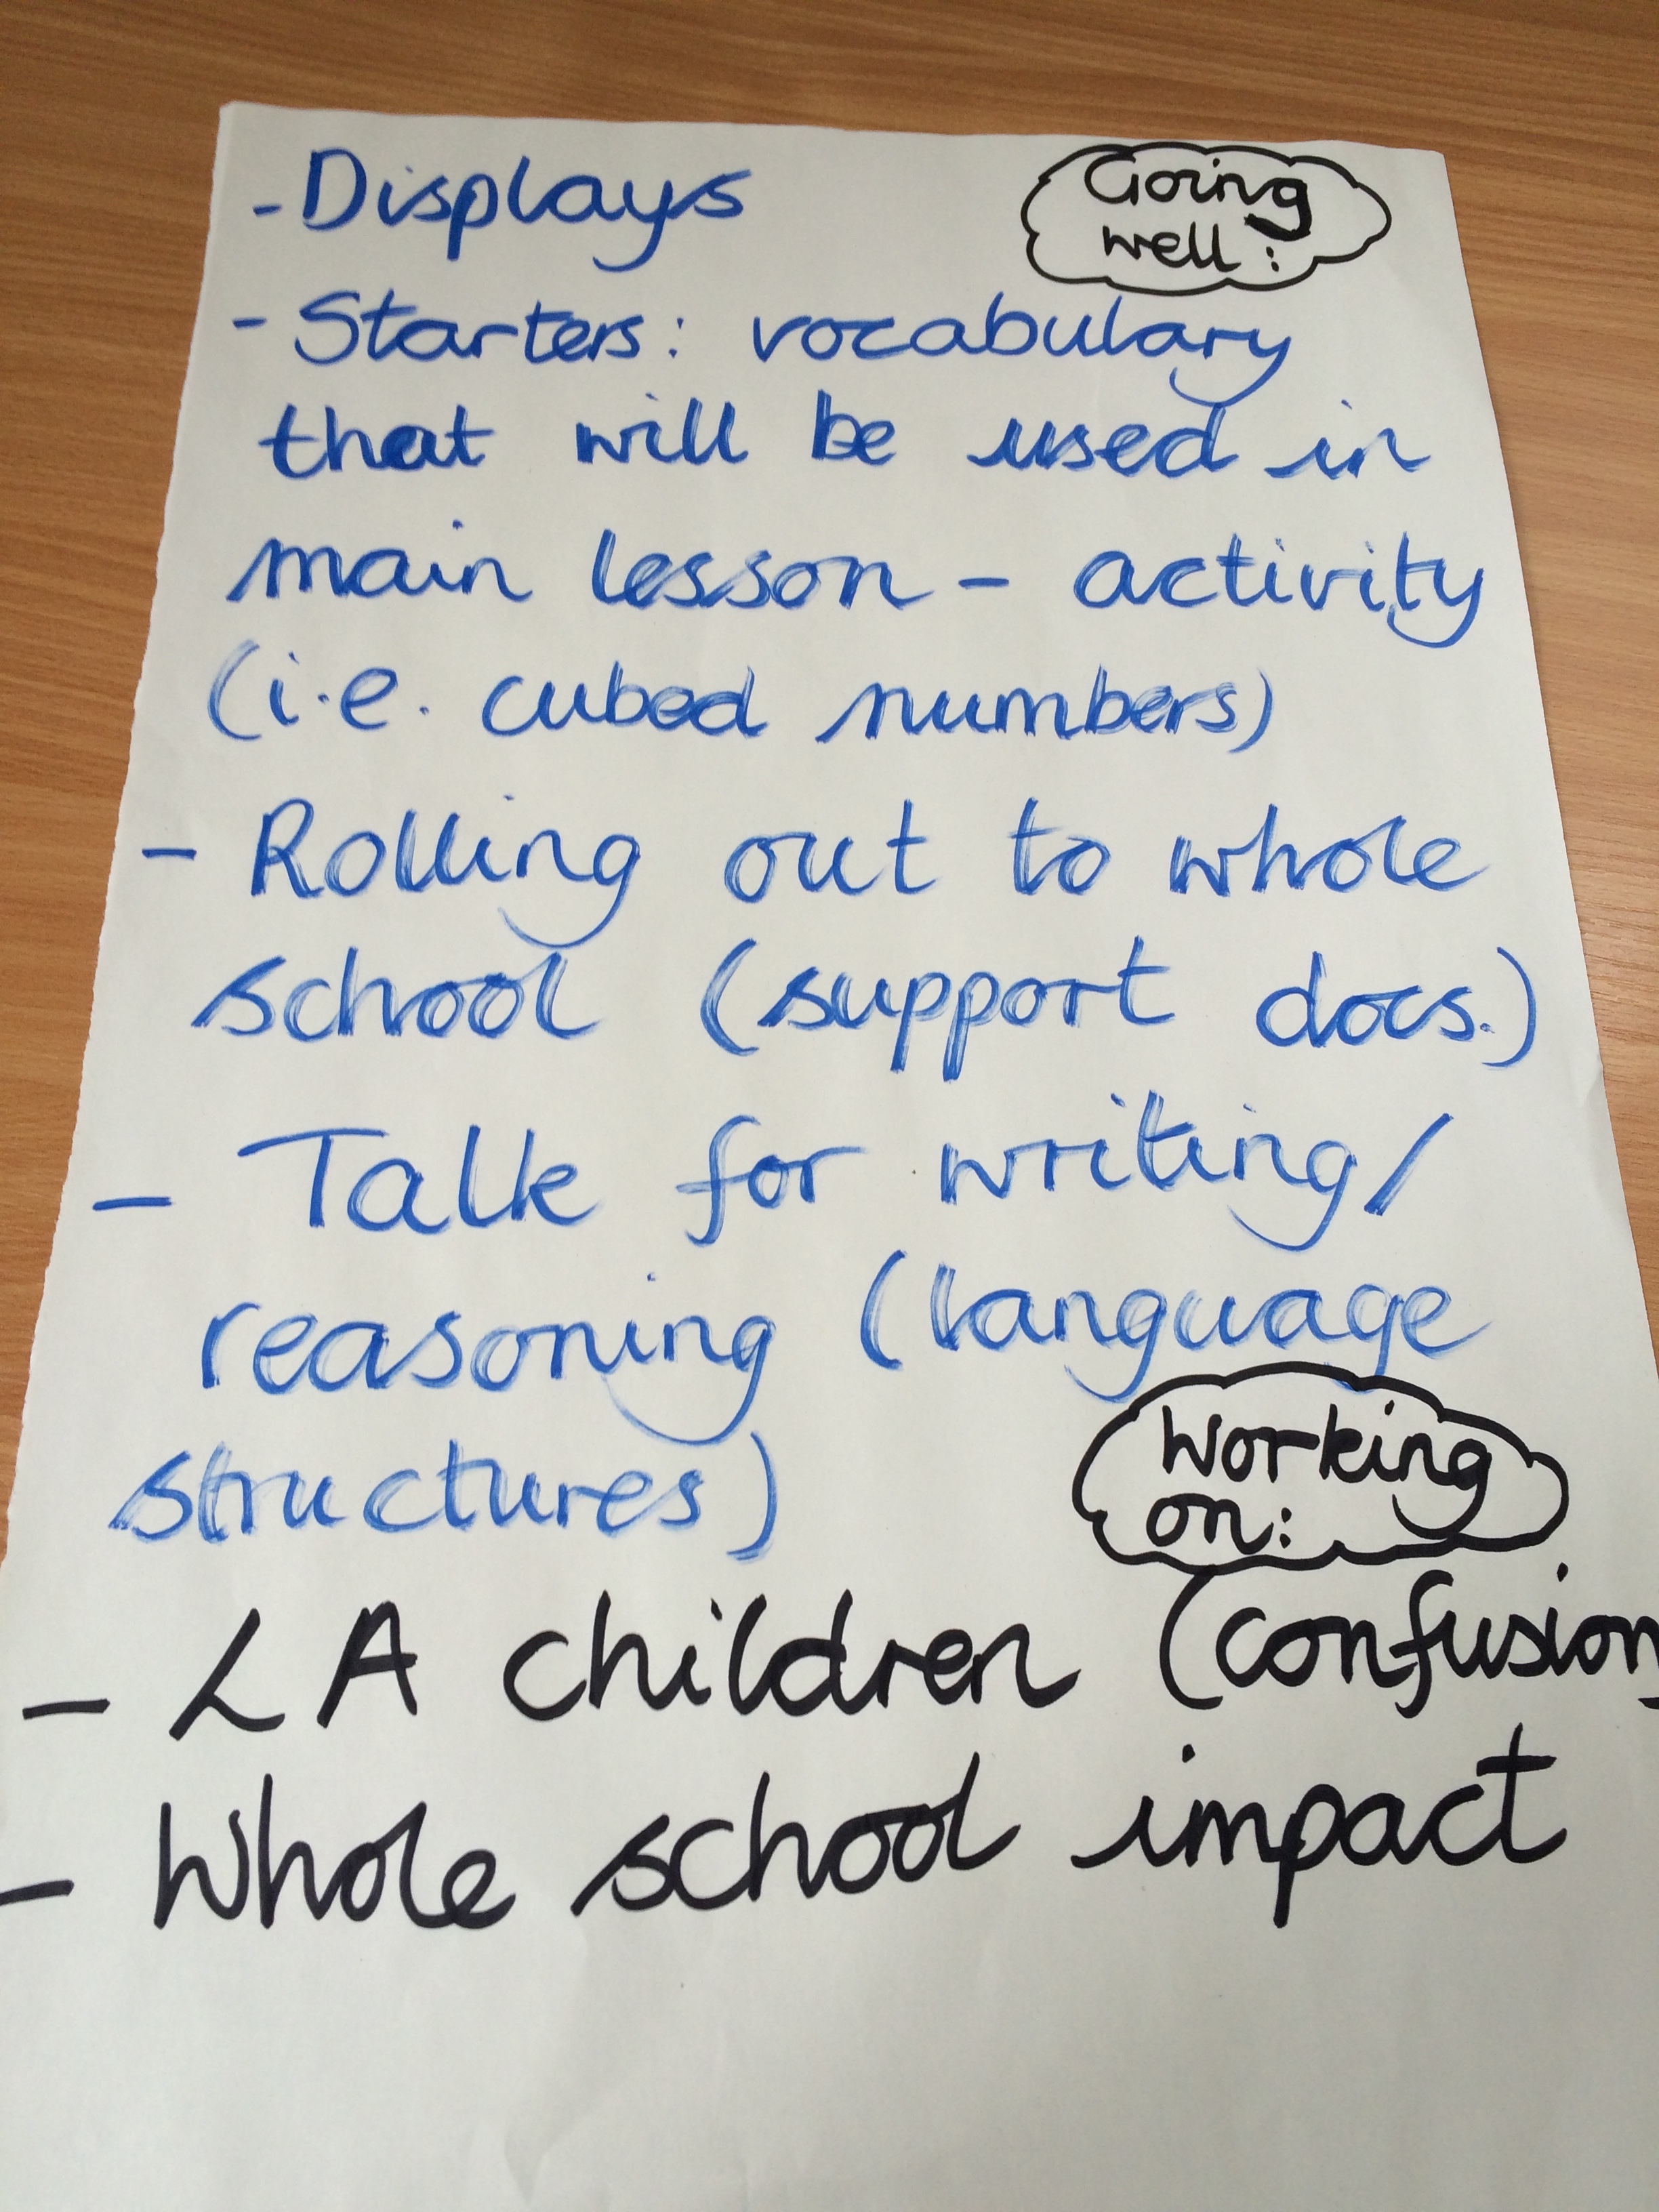 Going
well:
- Displays
- Starters: vocabulary
that will be used in
main lesson - activity
(i.e. cubed numbers)
- Rolling out to whole
school (support docs.)
- Talk for writing/
reasoning (language
structures)
Working
on:
- LA children (confusion
- Whole school impact